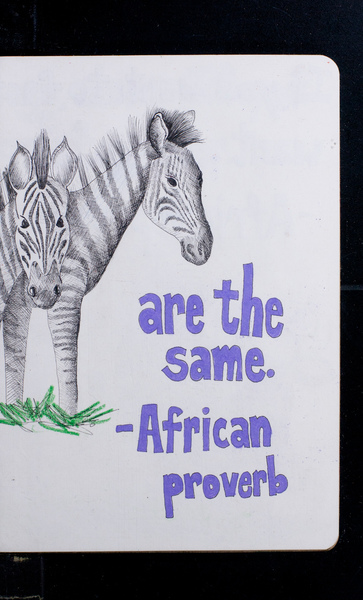 are the
same.
-African
proverb